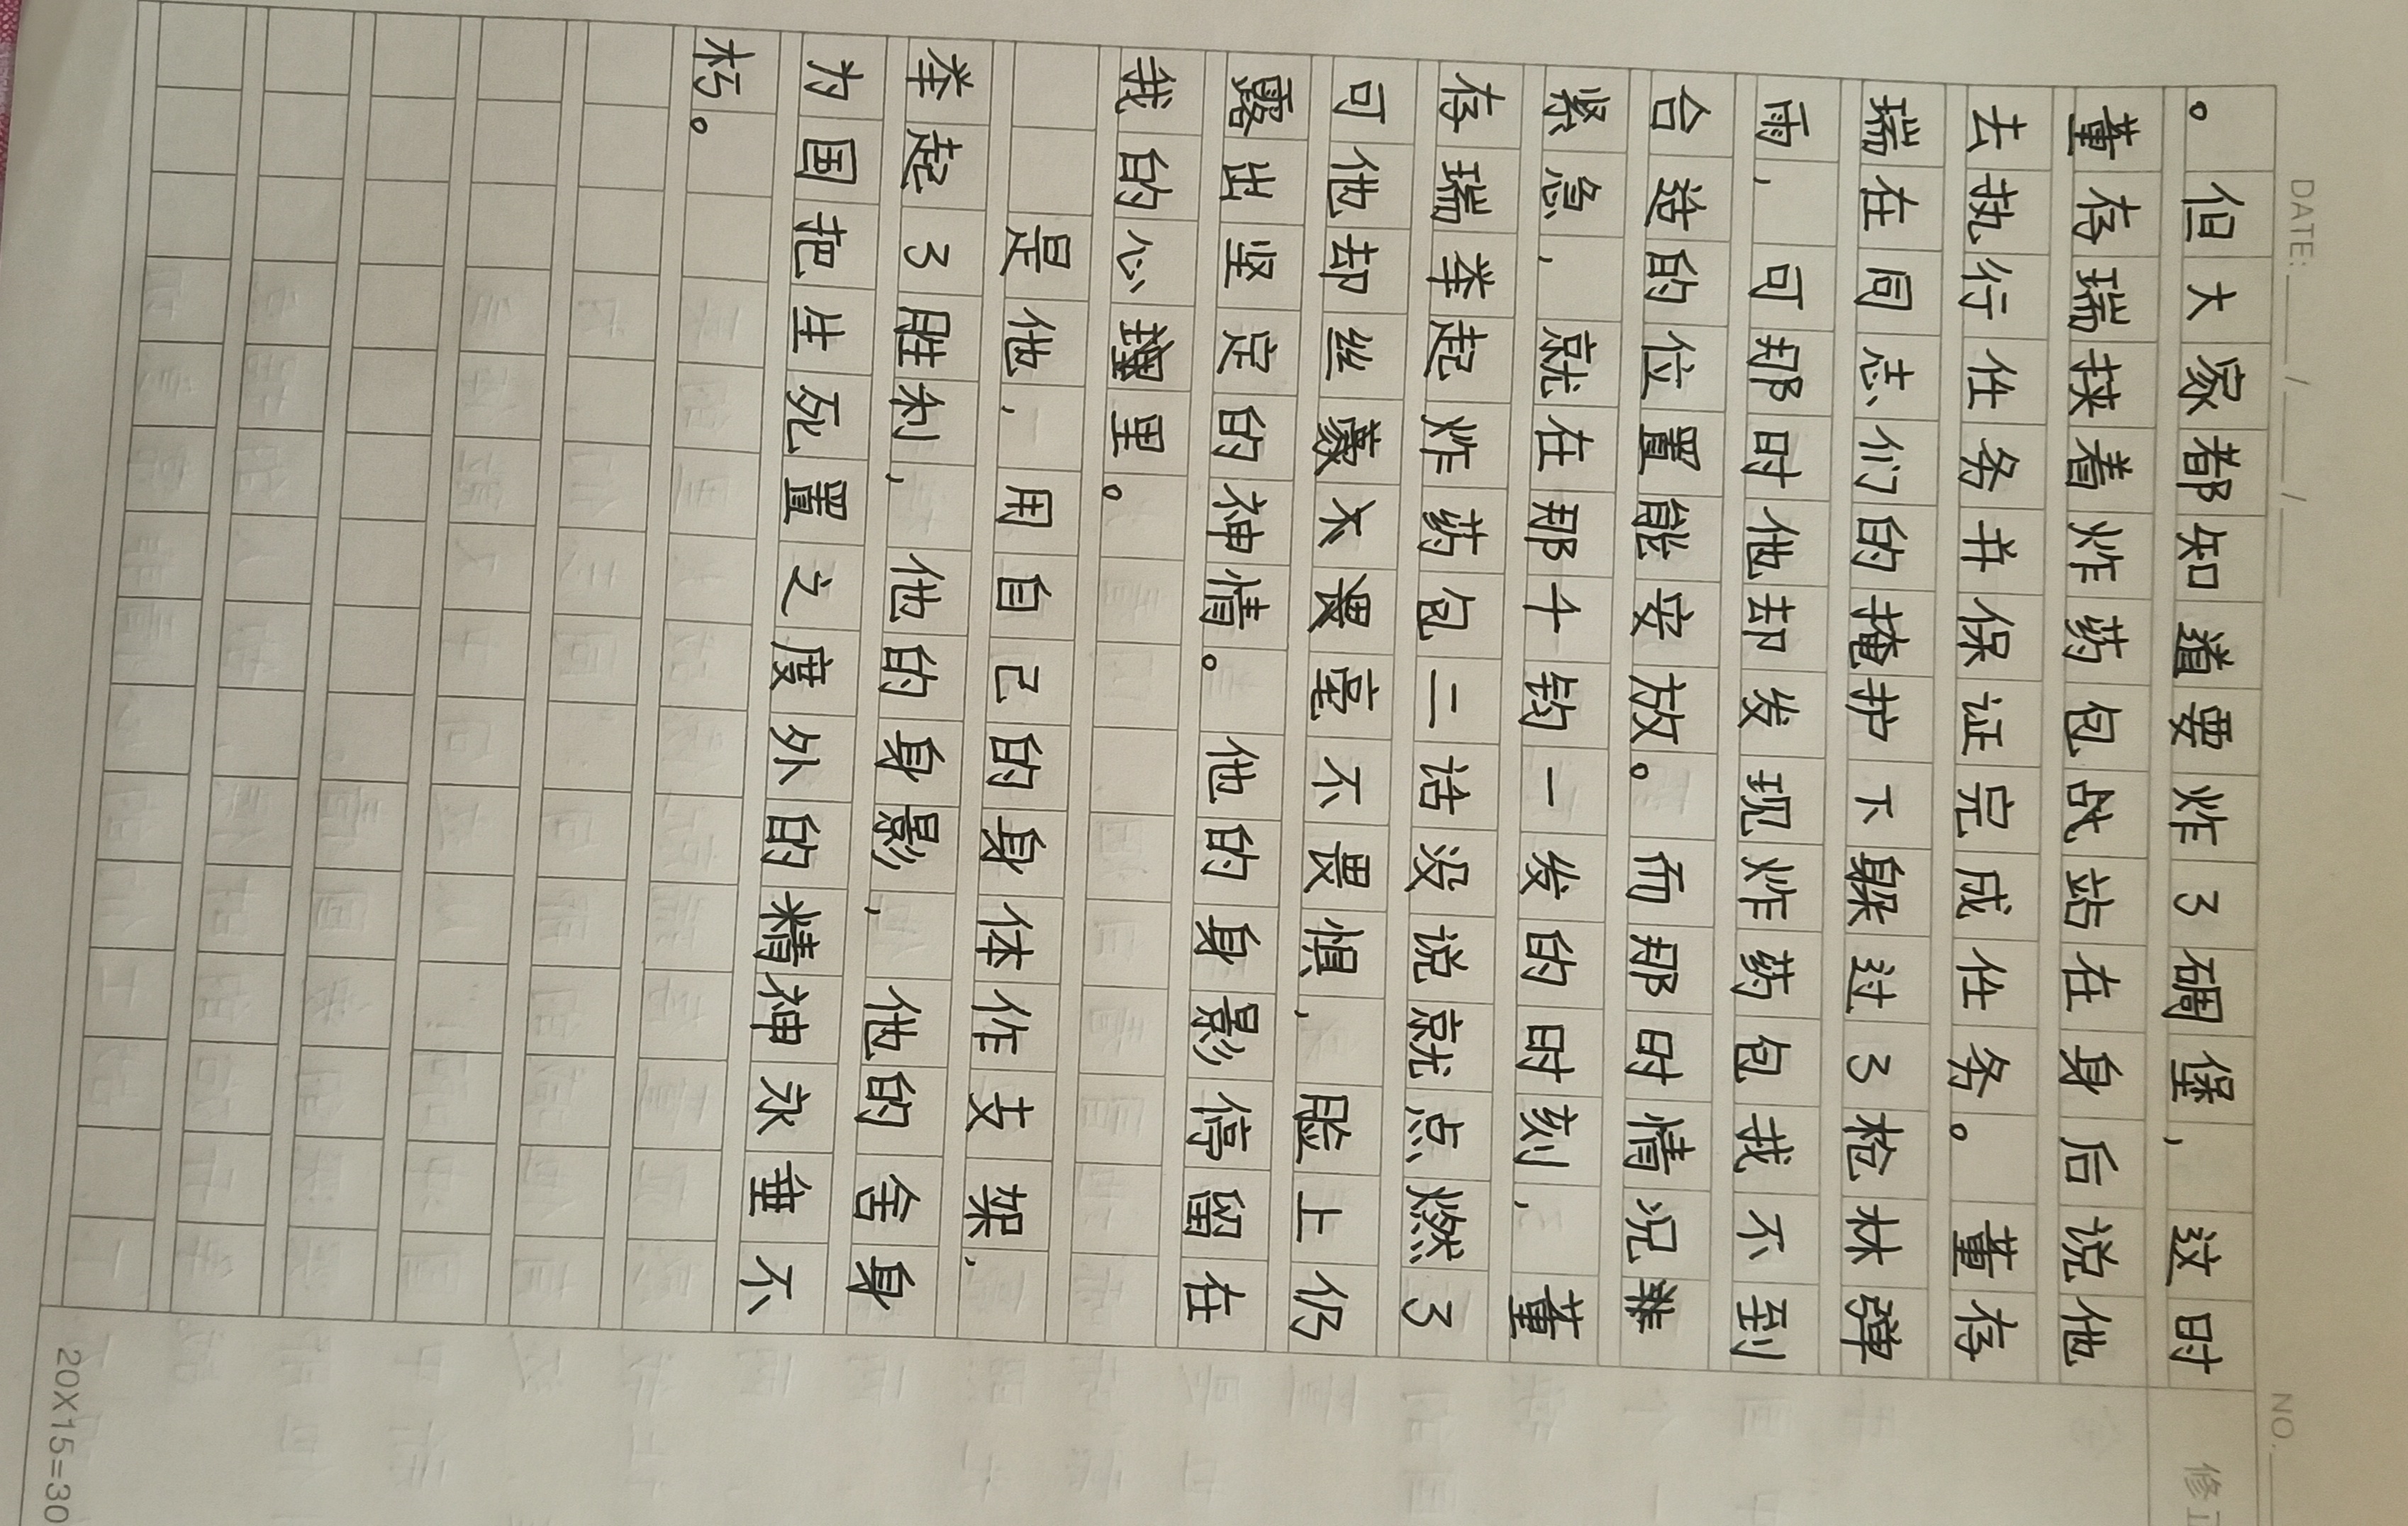 DATE: ___/___/___
NO.
修正
。但大家都知道要炸了碉堡，这时
董存瑞挟着炸药包战站在身后说他
去执行任务并保证完成任务。董存
瑞在同志们的掩护下躲过了枪林弹
雨，可那时他却发现炸药包找不到
合适的位置能安放。而那时情况
紧急，就在那千钧一发的时刻，董
存瑞举起炸药包二话没说就点燃了
可他却丝毫不畏惧，脸上仍
露出坚定的神情。他的身影停留在
我的心里。
是他，用自己的身体作支架，
举起了胜利，他的身影，他的舍身
为国把生死置之度外的精神永垂不
朽。
20X15=30